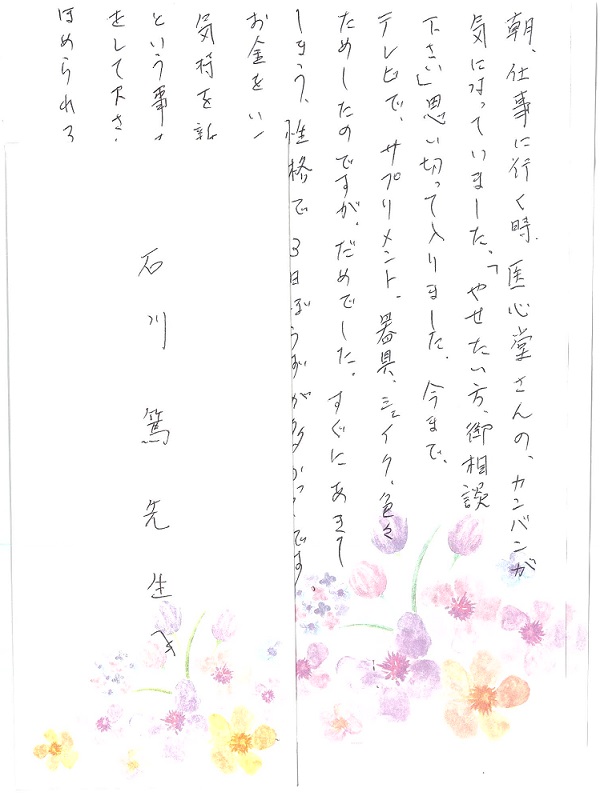 朝、仕事に行く時、医心堂さんの、カンバンが
気になっていました。「やせたい方、御相談
下さい」思い切って入りました。今まで、
テレビで、サプリメント、器具、シェイク、色々
ためしたのですが、だめでした。すぐにあきて
しまう、性格で3日ぼうずが多かったです
お金をい
気持を新
という事
をして下さ
ほめられる
石川篤先生へ